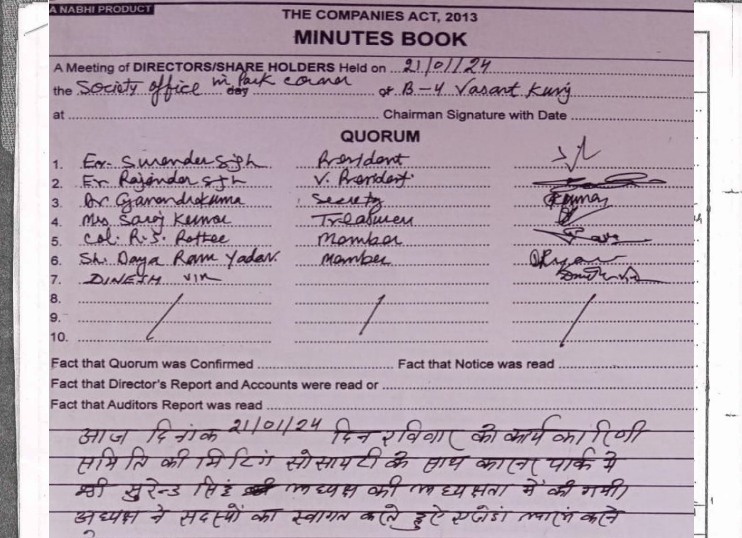 A NABHI PRODUCT
THE COMPANIES ACT, 2013
MINUTES BOOK
A Meeting of DIRECTORS/SHARE HOLDERS Held on 21/01/24
the Society office in Park corner day of B-4 Vasant Kunj
at Chairman Signature with Date
QUORUM
1. Er. Surender Sgh President
2. Er Rajender Sgh V. President
3. Dr Gyanendrakumar Secretary
4. Mrs Saroj Kumar Treasurer
5. Col. R.S. Rathee Member
6. Sh. Daya Ram Yadav. Member
7. DINESH VIR
8.
9.
10.
Fact that Quorum was Confirmed Fact that Notice was read
Fact that Director's Report and Accounts were read or
Fact that Auditors Report was read
आज दिनांक 21/01/24 दिन रविवार को कार्यकारिणी
समिति की मिटिंग सोसायटी के साथ कारनर पार्क में
श्री सुरेन्द्र सिंह अध्यक्ष की अध्यक्षता में की गयी।
अध्यक्ष ने सदस्यों का स्वागत करते हुऐ एजेंडा करने